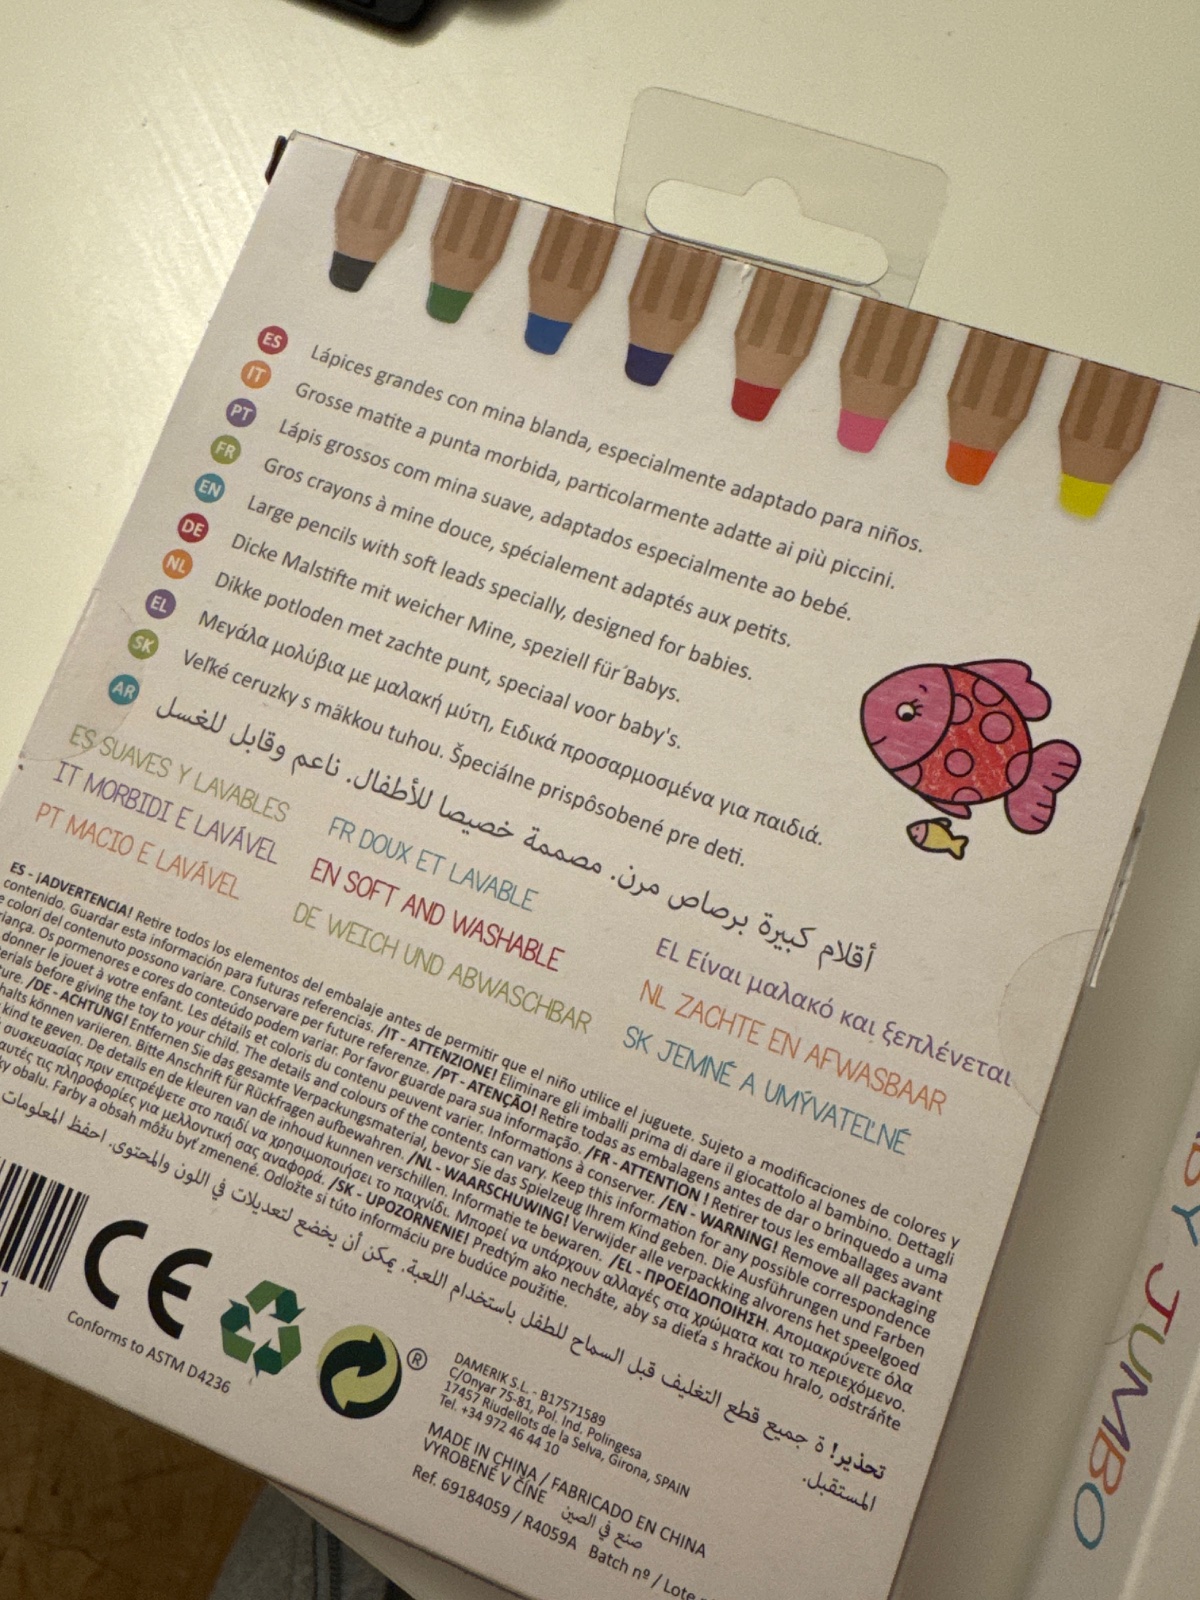 ES Lápices grandes con mina blanda, especialmente adaptado para niños.
IT Grosse matite a punta morbida, particolarmente adatte ai più piccini.
PT Lápis grossos com mina suave, adaptados especialmente ao bebé.
FR Gros crayons à mine douce, spécialement adaptés aux petits.
EN Large pencils with soft leads specially, designed for babies.
DE Dicke Malstifte mit weicher Mine, speziell für Babys.
NL Dikke potloden met zachte punt, speciaal voor baby's.
EL Μεγάλα μολύβια με μαλακή μύτη, Ειδικά προσαρμοσμένα για παιδιά.
SK Veľké ceruzky s mäkkou tuhou. Špeciálne prispôsobené pre deti.
AR أقلام كبيرة برصاص مرن. مصممة خصيصا للأطفال. ناعم وقابل للغسل
ES SUAVES Y LAVABLES
IT MORBIDI E LAVÁVEL
PT MACIO E LAVÁVEL
FR DOUX ET LAVABLE
EN SOFT AND WASHABLE
DE WEICH UND ABWASCHBAR
EL Είναι μαλακό και ξεπλένεται
NL ZACHTE EN AFWASBAAR
SK JEMNÉ A UMÝVATEĽNÉ
ES - ¡ADVERTENCIA! Retire todos los elementos del embalaje antes de permitir que el niño utilice el juguete. Sujeto a modificaciones de colores y
contenido. Guardar esta información para futuras referencias. /IT - ATTENZIONE! Eliminare gli imballi prima di dare il giocattolo al bambino. Dettagli
e colori del contenuto possono variare. Conservare per future referenze. /PT - ATENÇÃO! Retire todas as embalagens antes de dar o brinquedo a uma
riança. Os pormenores e cores do conteúdo podem variar. Por favor guarde para sua informação. /FR - ATTENTION ! Retirer tous les emballages avant
donner le jouet à votre enfant. Les détails et coloris du contenu peuvent varier. Informations à conserver. /EN - WARNING! Remove all packaging
terials before giving the toy to your child. The details and colours of the contents can vary. Keep this information for any possible correspondence
ture. /DE - ACHTUNG! Entfernen Sie das gesamte Verpackungsmaterial, bevor Sie das Spielzeug Ihrem Kind geben. Die Ausführungen und Farben
halts können variieren. Bitte Anschrift für Rückfragen aufbewahren. /NL - WAARSCHUWING! Verwijder alle verpackking alvorens het speelgoed
kind te geven. De details en de kleuren van de inhoud kunnen verschillen. Informatie te bewaren. /EL - ΠΡΟΕΙΔΟΠΟΙΗΣΗ. Απομακρύνετε όλα
συσκευασίας πριν επιτρέψετε στο παιδί να χρησιμοποιήσει το παιχνίδι. Μπορεί να υπάρχουν αλλαγές στα χρώματα και το περιεχόμενο.
αυτές τις πληροφορίες για μελλοντική σας αναφορά. /SK - UPOZORNENIE! Predtým ako necháte, aby sa dieťa s hračkou hralo, odstráňte
ky obalu. Farby a obsah môžu byť zmenené. Odložte si túto informáciu pre budúce použitie.
تحذير! ة جميع قطع التغليف قبل السماح للطفل باستخدام اللعبة. يمكن أن يخضع لتعديلات في اللون والمحتوى. احفظ المعلومات
المستقبل.
1
CE
Conforms to ASTM D4236
®
DAMERIK S.L. - B17571589
C/Onyar 75-81, Pol. Ind. Polingesa
17457 Riudellots de la Selva, Girona, SPAIN
Tel. +34 972 46 44 10
MADE IN CHINA / FABRICADO EN CHINA
VYROBENÉ V ČÍNE صنع في الصين
Ref. 69184059 / R4059A Batch nº / Lote
BY JUMBO